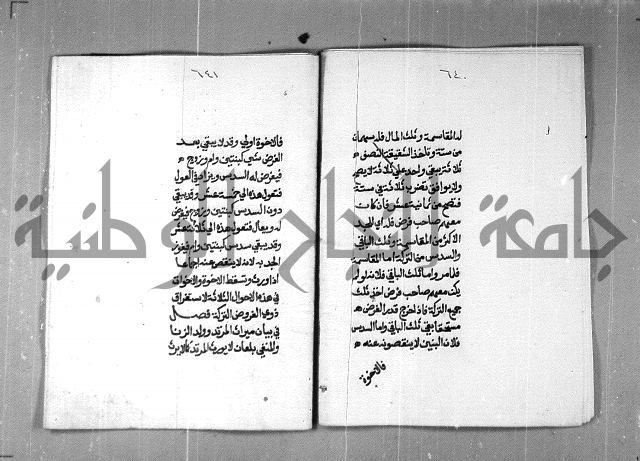 ٦٤٠
له المقاسمة وثلث المال فله سهمان
من ستة وتأخذ الشقيقة النصف
ثلاثة يبقى واحد على ثلاثة لا يصح
ولا يوافق تضرب ثلاثة في ستة
فتصح من ثمانية عشر فان كان
معهم صاحب فرض فله اي للجد
الاكثر من المقاسمة وثلث الباقي
والسدس من التركة اما المقاسمة
فلما مر واما ثلث الباقي فلانه لو لم
يكن معهم صاحب فرض اخذ ثلث
جميع التركة فاذا خرج قدر الفرض
مستحقا بقي ثلث الباقي واما السدس
فلان البنين لا ينقصونه عنه
فالاخوة
٦٤١
فالاخوة اولى وقد لا يبقى بعد
الفرض شي كبنتين وام وزوج
فيفرض له السدس ويزاد في العول
فتعول هذه الى خمسة عشر وقد يبقى
دون السدس كبنتين وزوج فيفرض
له ويعال فتعول هذه الى ثلاثة عشر
وقد يبقى سدس كبنتين وام فيفوز
الجد به لانه لا ينقص عنه اجماعا
اذا ورث وتسقط الاخوة والاخوات
في هذه الاحوال الثلاثة لاستغراق
ذوي الفروض التركة فصل
في بيان ميراث المرتد وولد الزنا
والمنفي بلعان لا يورث المرتد كالا يرث
جامعة النجاح الوطنية